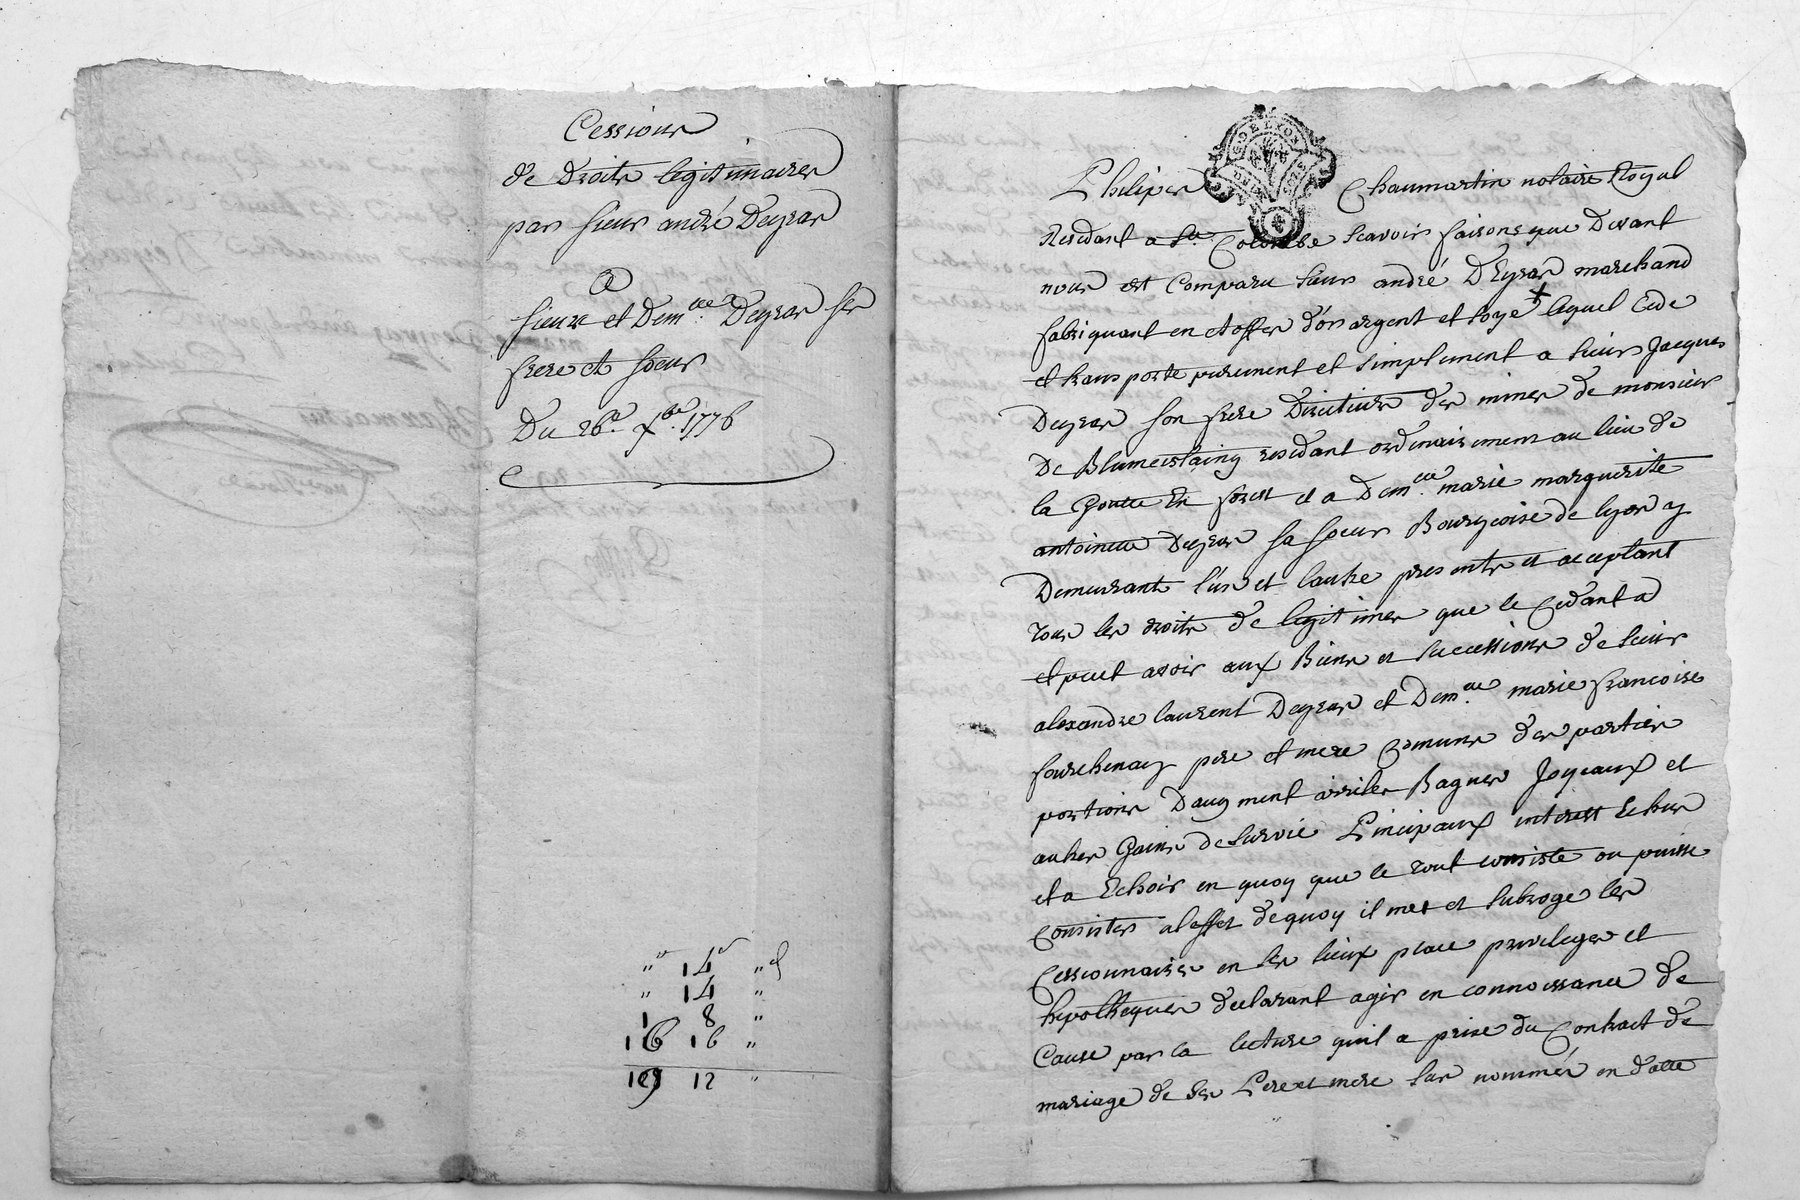 Cession
de Droits legitimaires
par sieur andré Deyras
a
sieur et Dem.lle Deyras ses
frere et soeur
Du 26.e 7bre 1776
" 14 "
" 14 "
1 8 "
16 16 "
19 12 "
G. DE LYON
Philipes Chaumartin notaire Royal
Residant a Ste Colombe scavoir faisons que Devant
nous est Comparu sieur andré DEyras marchand
fabriquant en etoffes d'or argent et soye + lequel Cede
et transporte purement et simplement a sieur Jacques
Deyras son frere Directeur des mines de monsieur
De Blumeistaing residant ordinairement au lieu de
la Goutte En forest et a Dem.lle marie marguerite
antoinette Deyras sa soeur Bourgeoise de lyon y
Demeurant l'un et l'autre presents et acceptant
tous les droits de legitimes que le Cedant a
et peut avoir aux Biens et successions de sieur
alexandre laurent Deyras et Dem.lle marie francoise
fourchenay pere et mere Comuns des parties
portions Daugment Bagues Joyeaux et
autres Gains de survie Principaux interest Echus
et a Echoir en quoy que le tout consiste ou puisse
Consister a l'effet de quoy il met et subroge les
Cessionnaires en ses lieux place privileges et
hipotheques declarant agir en connoissance de
Cause par la lecture qu'il a prise du Contract de
mariage de ses Pere et mere sus nommés en datte